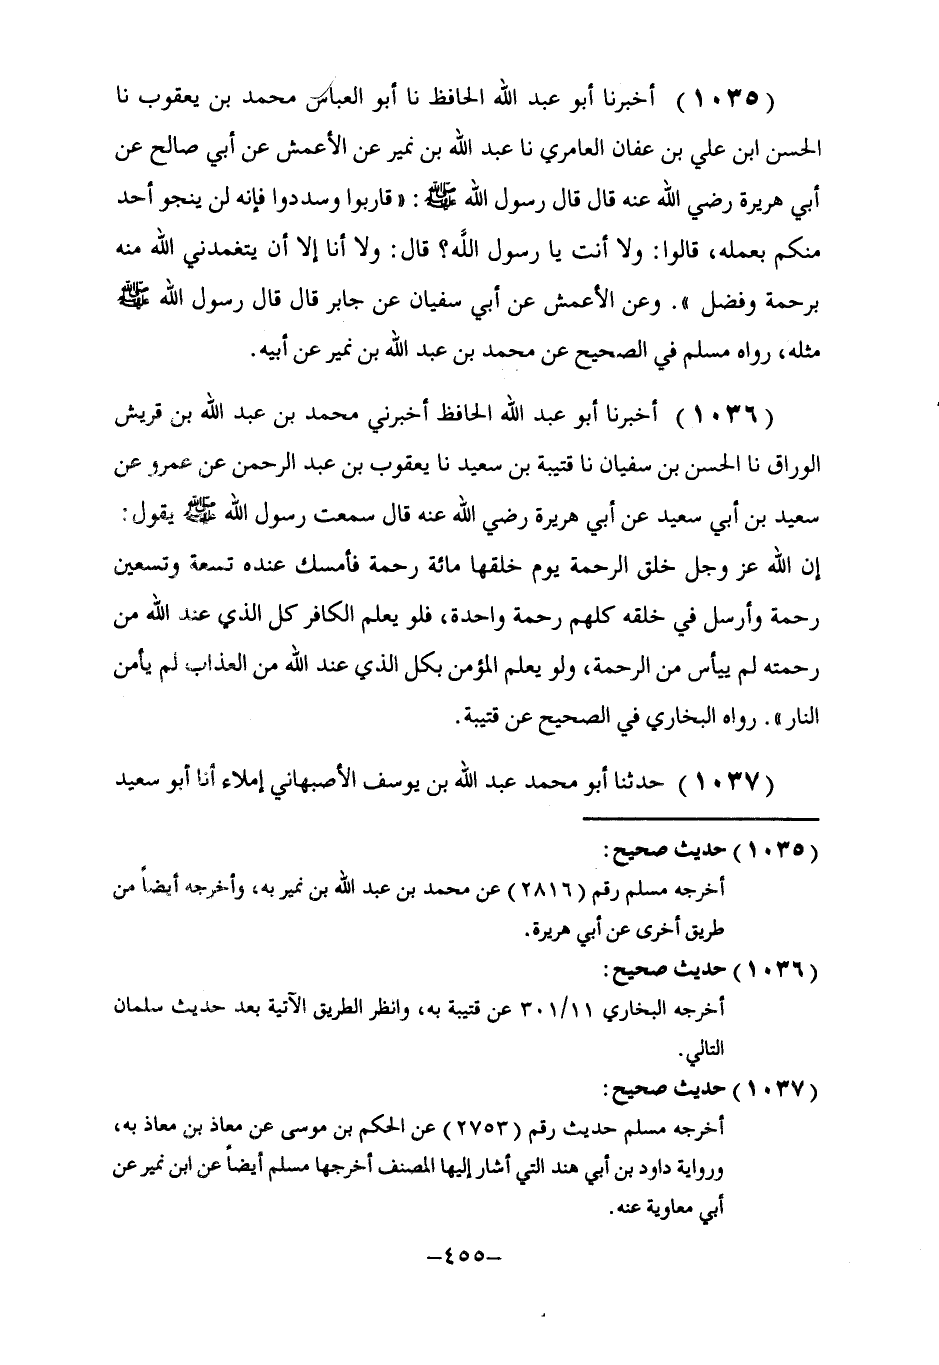 (١٠٣٥) أخبرنا أبو عبد الله الحافظ نا أبو العباس محمد بن يعقوب نا
الحسن ابن علي بن عفان العامري نا عبد الله بن نمير عن الأعمش عن أبي صالح عن
أبي هريرة رضي الله عنه قال قال رسول الله ﷺ: « قاربوا وسددوا فإنه لن ينجو أحد
منكم بعمله، قالوا: ولا أنت يا رسول اللَّه؟ قال: ولا أنا إلا أن يتغمدني الله منه
برحمة وفضل ». وعن الأعمش عن أبي سفيان عن جابر قال قال رسول الله ﷺ
مثله، رواه مسلم في الصحيح عن محمد بن عبد الله بن نمير عن أبيه.
(١٠٣٦) أخبرنا أبو عبد الله الحافظ أخبرني محمد بن عبد الله بن قريش
الوراق نا الحسن بن سفيان نا قتيبة بن سعيد نا يعقوب بن عبد الرحمن عن عمرو عن
سعيد بن أبي سعيد عن أبي هريرة رضي الله عنه قال سمعت رسول الله ﷺ يقول:
إن الله عز وجل خلق الرحمة يوم خلقها مائة رحمة فأمسك عنده تسعة وتسعين
رحمة وأرسل في خلقه كلهم رحمة واحدة، فلو يعلم الكافر كل الذي عند الله من
رحمته لم ييأس من الرحمة، ولو يعلم المؤمن بكل الذي عند الله من العذاب لم يأمن
النار». رواه البخاري في الصحيح عن قتيبة.
(١٠٣٧) حدثنا أبو محمد عبد الله بن يوسف الأصبهاني إملاء أنا أبو سعيد
(١٠٣٥) حديث صحيح:
أخرجه مسلم رقم (٢٨١٦) عن محمد بن عبد الله بن نمير به، وأخرجه أيضاً من
طريق أخرى عن أبي هريرة.
(١٠٣٦) حديث صحيح:
أخرجه البخاري ٣٠١/١١ عن قتيبة به، وانظر الطريق الآتية بعد حديث سلمان
التالي.
(١٠٣٧) حديث صحيح:
أخرجه مسلم حديث رقم (٢٧٥٣) عن الحكم بن موسى عن معاذ بن معاذ به،
ورواية داود بن أبي هند التي أشار إليها المصنف أخرجها مسلم أيضاً عن ابن نمير عن
أبي معاوية عنه.
–٤٥٥–